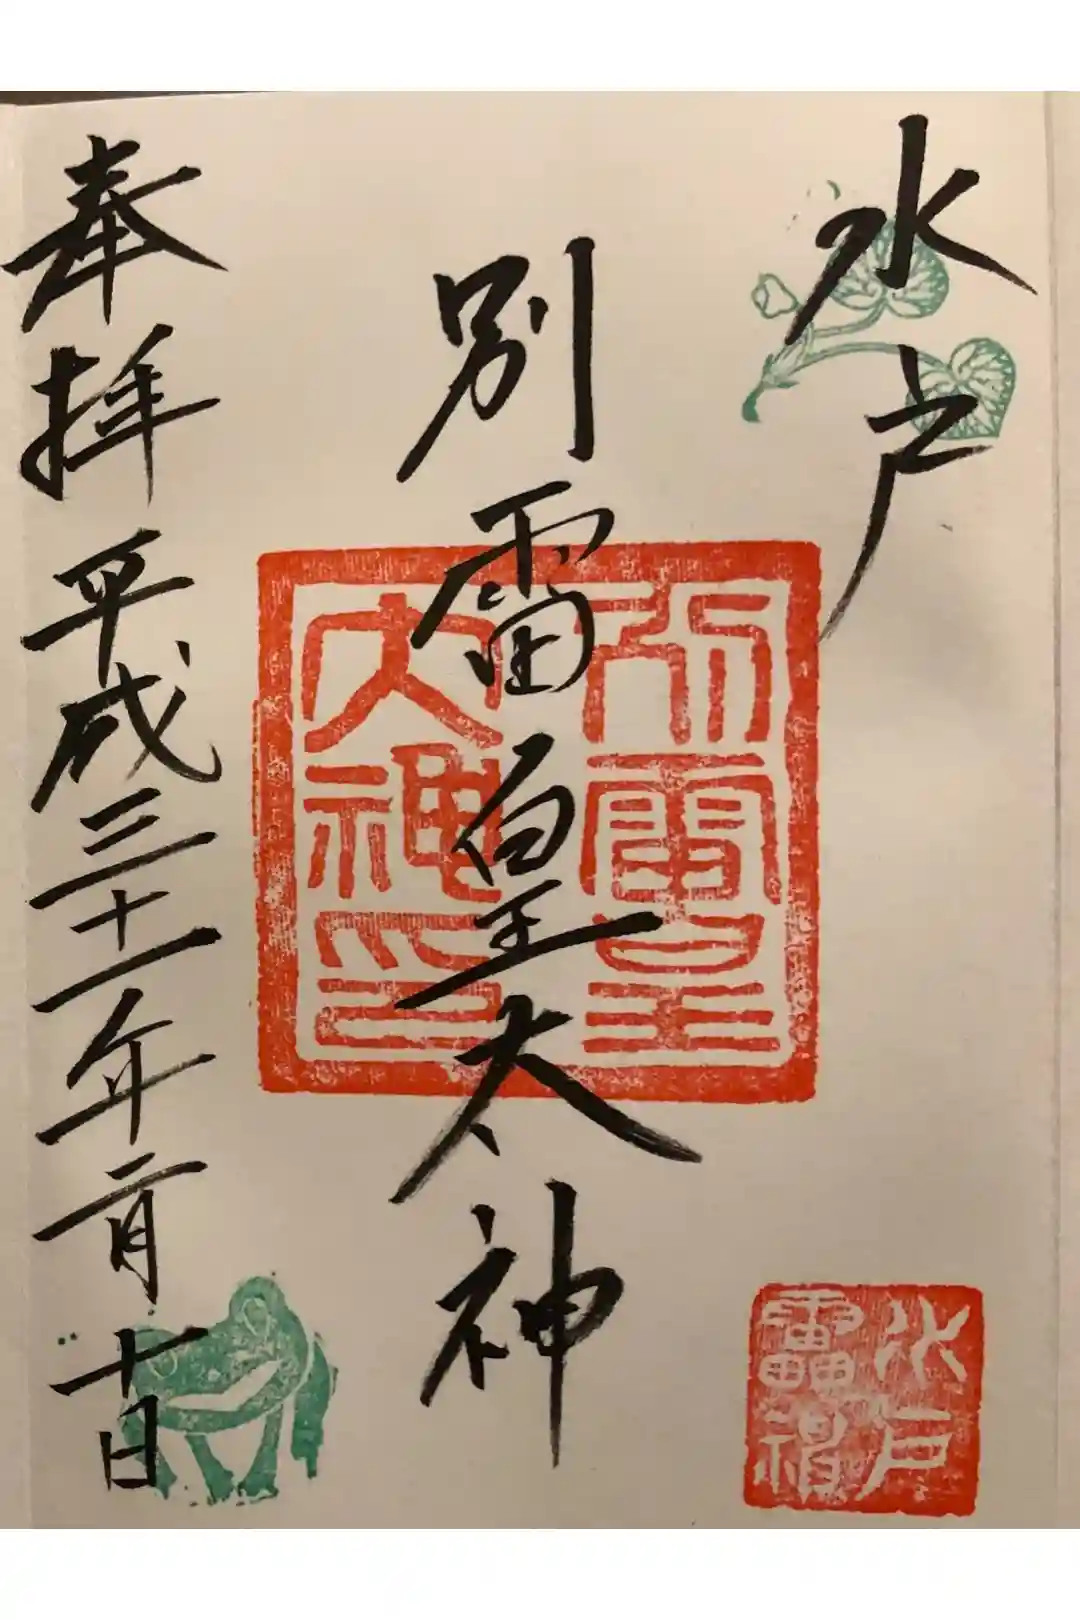 水戸
別雷皇太神
奉拝 平成三十一年二月十日
別雷皇
大神印
水戸
雷神